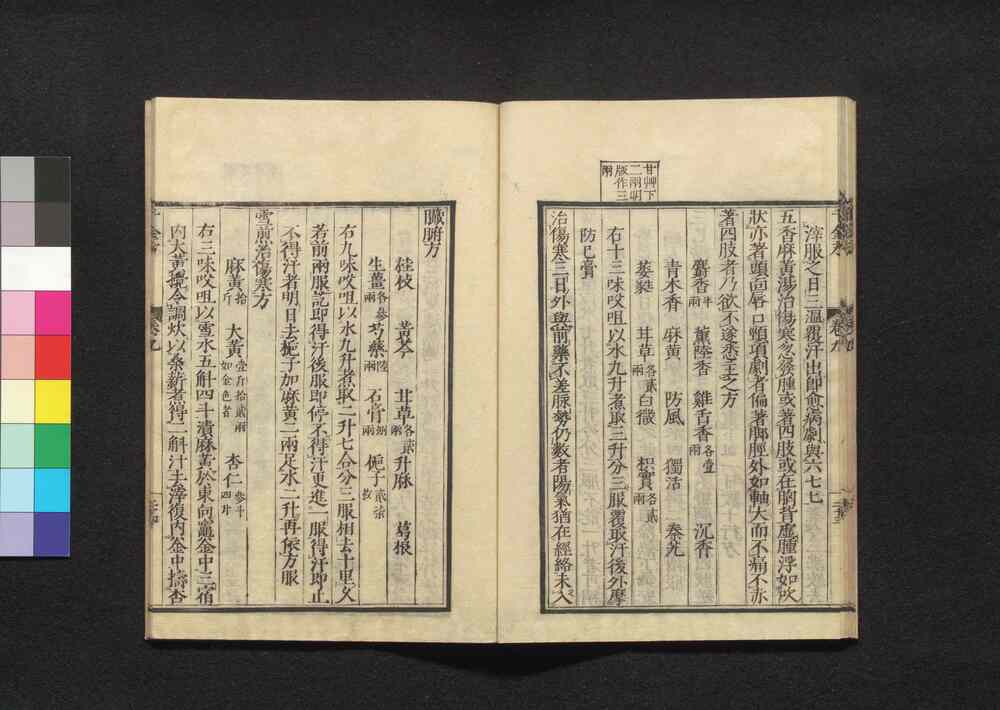 甘艸下
二兩明
版作三
兩
滓服之日三溫覆汗出卽愈病劇與六七七
五香麻黃湯治傷寒忽發腫或著四肢或在胸背虛腫浮如吹
狀亦著頭面唇口頸項劇者偏著腳脛外如軸大而不痛不赤
著四肢者乃欲不遂悉主之方
麝香半兩 薰陸香 雞舌香各壹兩 沉香
青木香 麻黃 防風 獨活 秦艽
萎蕤 甘草各貳兩 白薇 枳實各貳兩
右十三味㕮咀以水九升煮取三升分三服覆取汗後外摩
防已膏
治傷寒三日外與前藥不差脉勢仍數者陽氣猶在經絡未入
臟腑方
桂枝 黃芩 甘草各貳兩 升麻 葛根
生薑各參兩 芍藥陸兩 石膏捌兩 梔子貳柒枚
右九味㕮咀以水九升煮取二升七合分二服相去十里久
若前兩服訖即得汗後服即停不得汗更進一服得汗即止
不得汗者明日去梔子加麻黃二兩足水二升再依方服
雪煎治傷寒方
麻黃拾斤 大黃壹斤拾貳兩如金色者 杏仁參斗四升
右三味㕮咀以雪水五斛四斗漬麻黃於東向竈釜中三宿
內大黃攪令調炊以桑薪煮得二斛汁去滓復內釜中擣杏